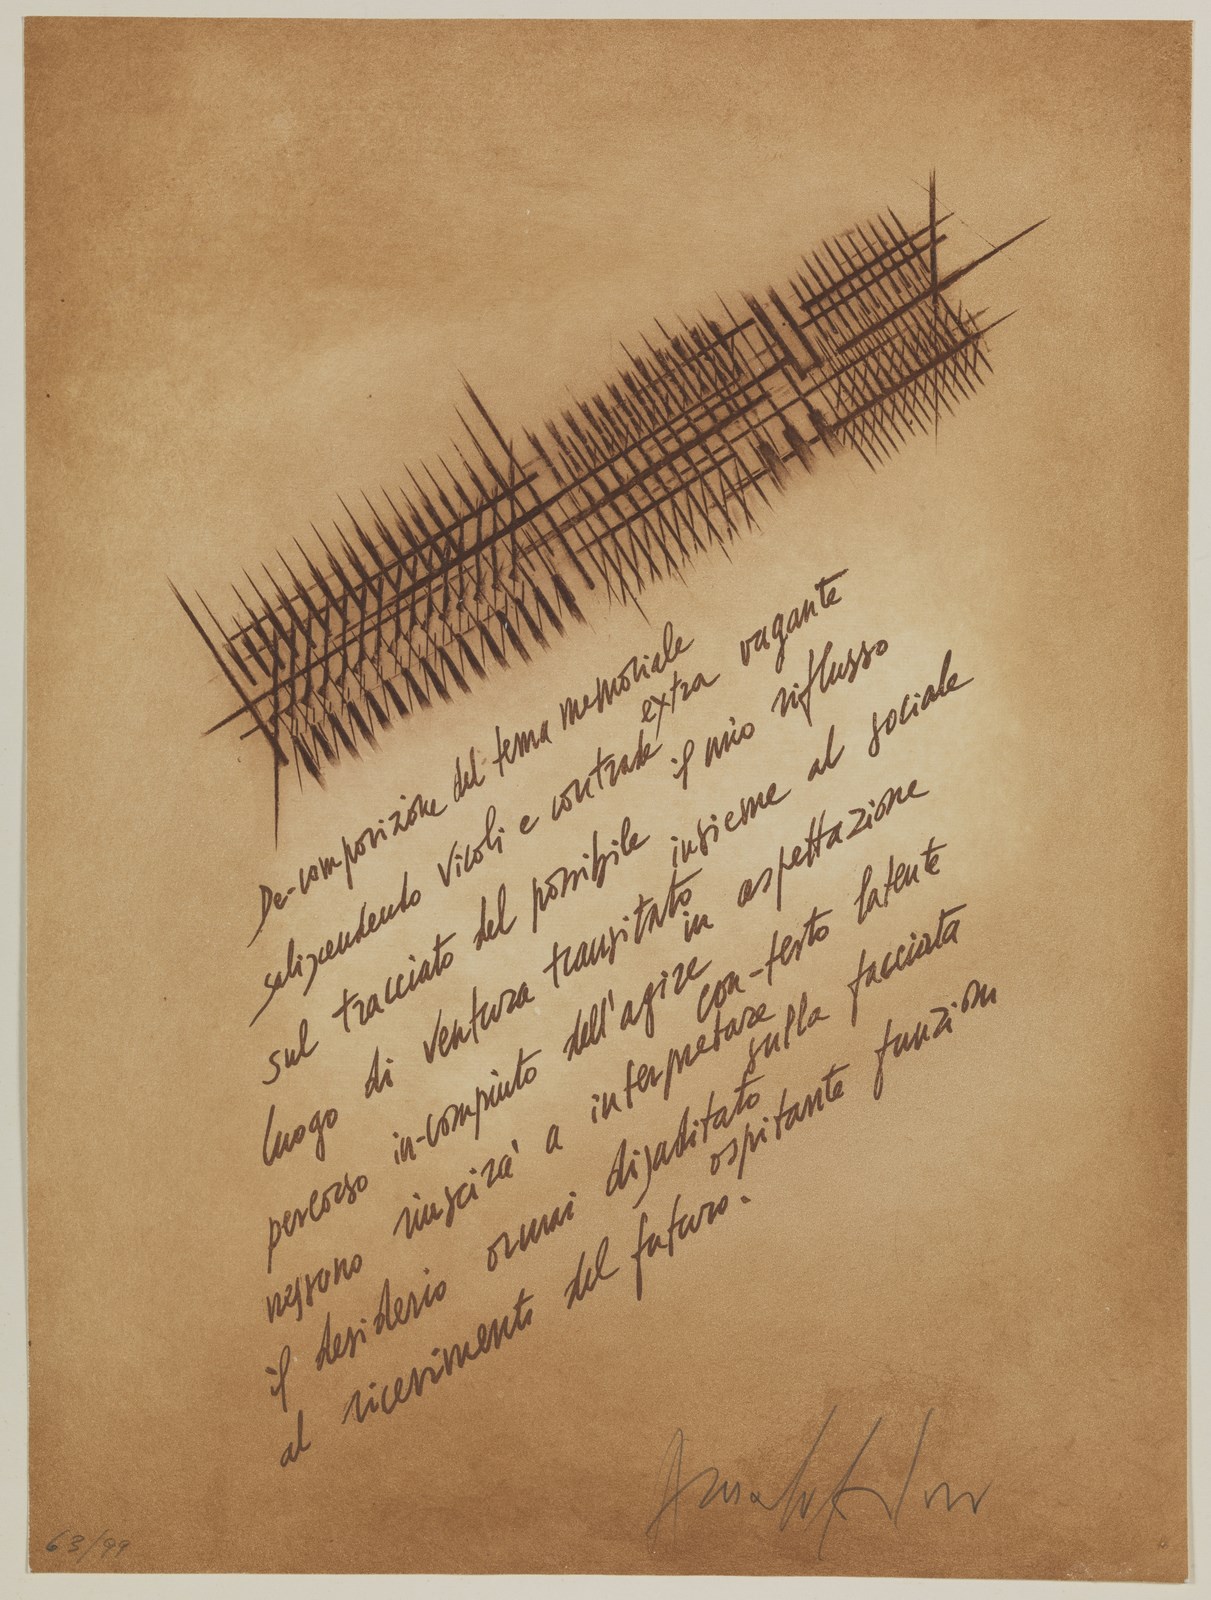 De-composizione del tema memoriale
saliscendendo vicoli e contrade extra vagante
sul tracciato del possibile il mio riflusso
luogo di ventura transitato insieme al sociale
percorso in-compiuto dell'agire in aspettazione
nessuno riuscirà a interpretare con-testo latente
il desiderio ormai disabitato sulla facciata
al ricevimento del futuro. ospitante funzioni
63/99